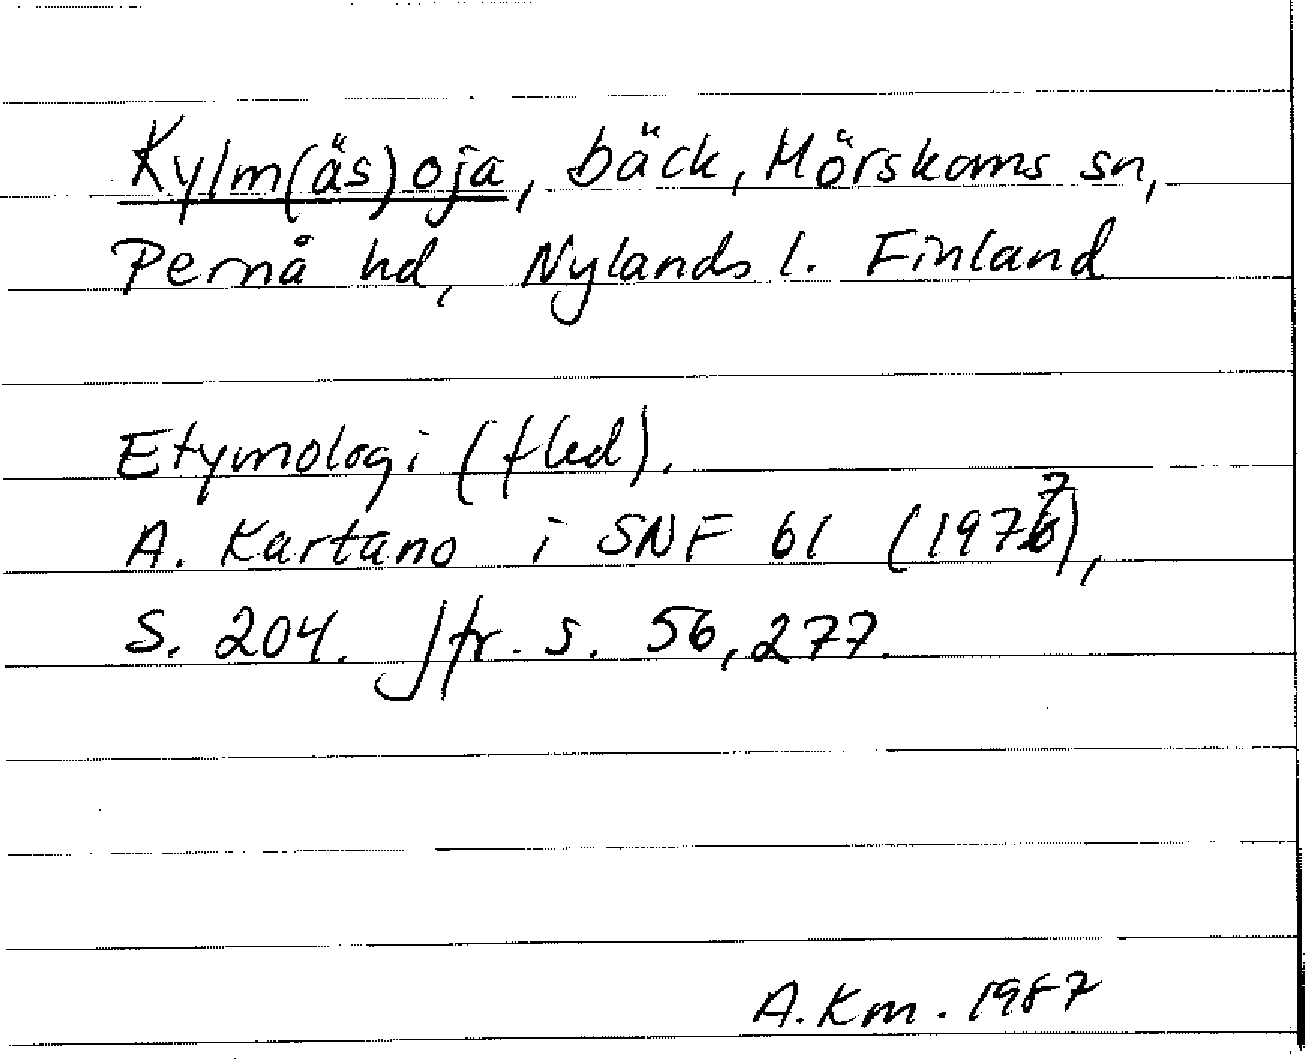 Kylm(äs)oja, bäck, Mörskoms sn,
Pernå hd, Nylands l. Finland
Etymologi (fled).
A. Kartano i SNF 61 (1977),
S. 204. Jfr. s. 56, 277.
A. Km. 1987